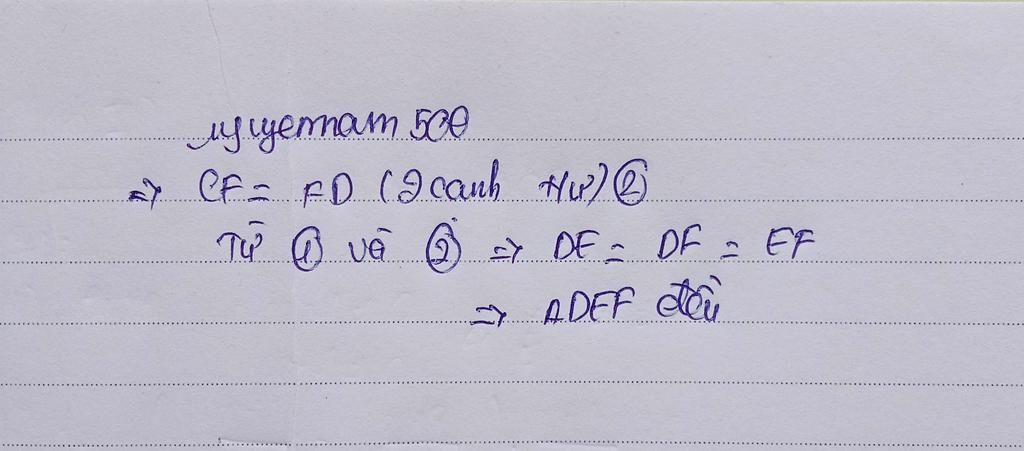 uyuyennam 500
=> EF = FD (2 canh tư) ②
Từ ① và ② => DE = DF = EF
=> ΔDEF đều